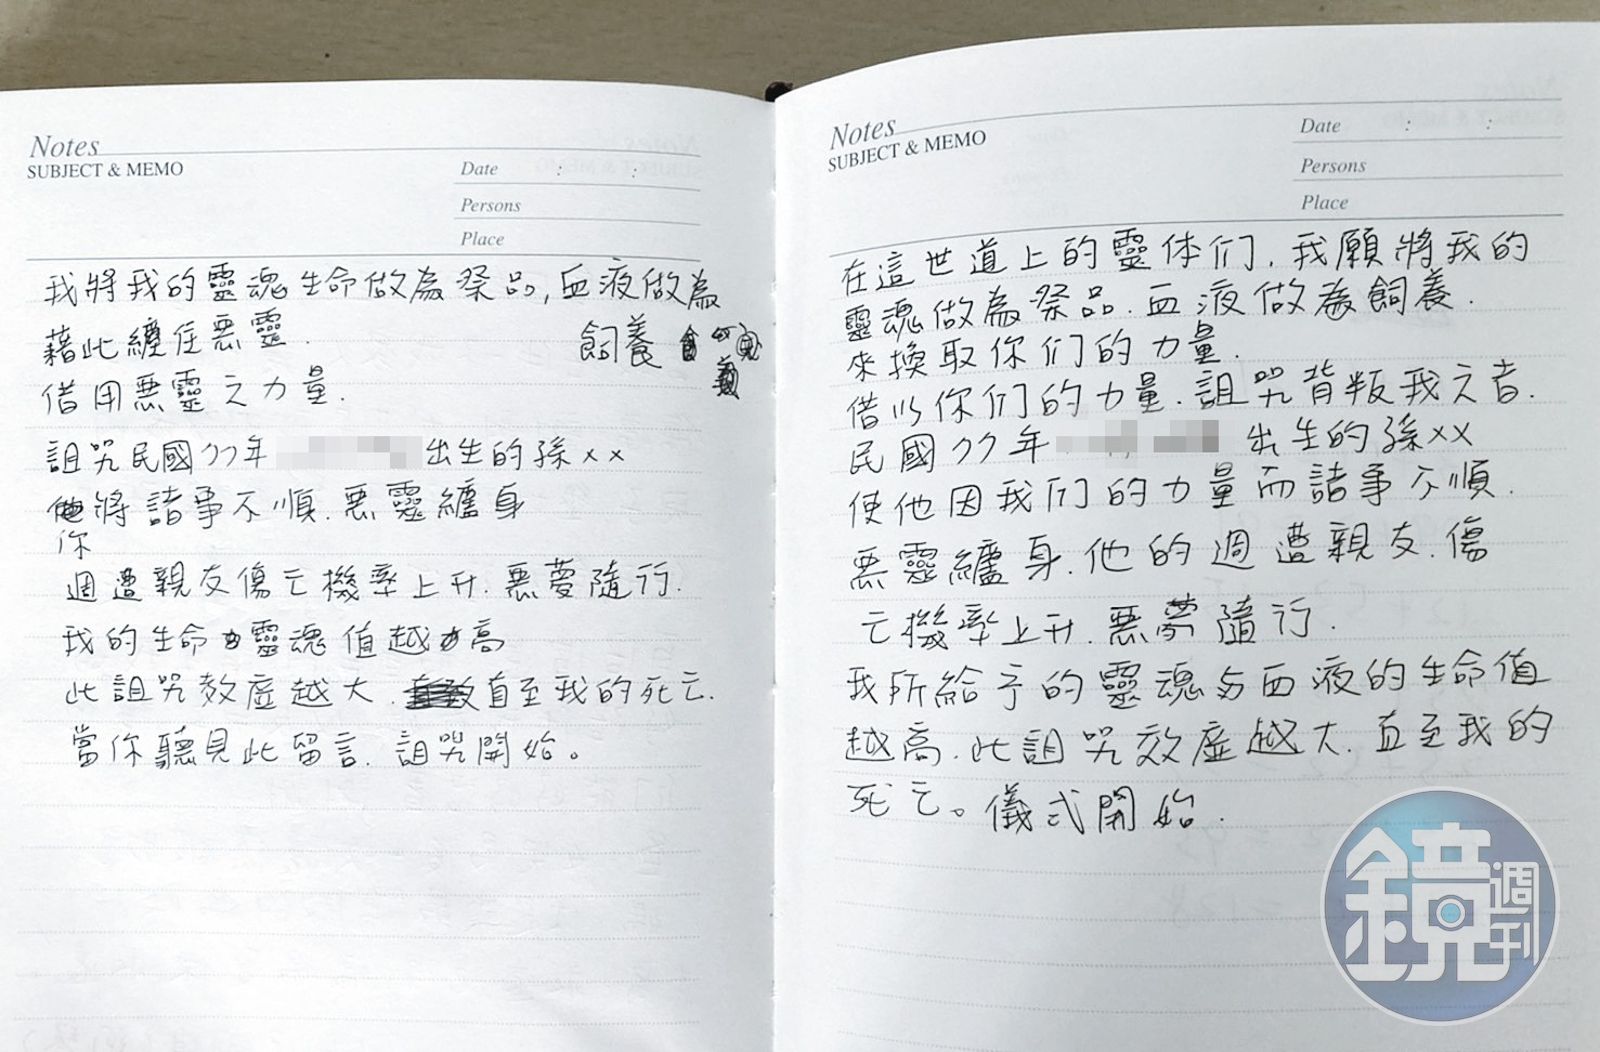 Notes
SUBJECT & MEMO
Date : :
Persons
Place
我將我的靈魂生命做為祭品,血液做為
飼養
藉此纏住惡靈.
借用惡靈之力量.
詛咒民國77年 出生的孫××
他將諸事不順.惡靈纏身
你
週遭親友傷亡機率上升.惡夢隨行.
我的生命 靈魂值越 高
此詛咒效應越大. 直至我的死亡.
當你聽見此留言.詛咒開始。
Notes
SUBJECT & MEMO
Date : :
Persons
Place
在這世道上的靈体们,我願將我的
靈魂做為祭品.血液做為飼養.
來換取你们的力量.
借以你们的力量.詛咒背叛我之者.
民國77年 出生的孫××
使他因我们的力量而諸事不順.
惡靈纏身.他的週遭親友.傷
亡機率上升.惡夢隨行.
我所給予的靈魂与血液的生命值
越高.此詛咒效應越大.直至我的
死亡。儀式開始.
鏡週刊